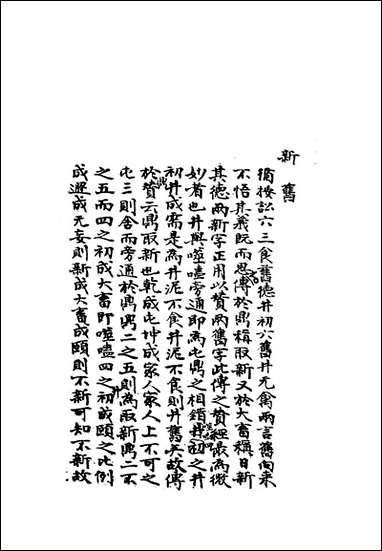 新舊
循按訟六三食舊德井初六舊井无禽兩言舊向來
不悟其義既而思傳於鼎稱取新又於大畜稱日新
其德兩新字正用以贊兩舊字此傳之贊經最為微
妙者也井與噬嗑旁通即為屯鼎之相錯井初之井
初井成需是為井泥不食井泥不食則井舊矣故傳
於贊云鼎取新也乾成屯坤成家人家人上不可之
屯三則舍而旁通於鼎鼎二之五則為取新鼎二不
之五而四之初成大畜即噬嗑四之初成頤之比例
成遯成无妄則新成大畜成頤則不新可知不新故